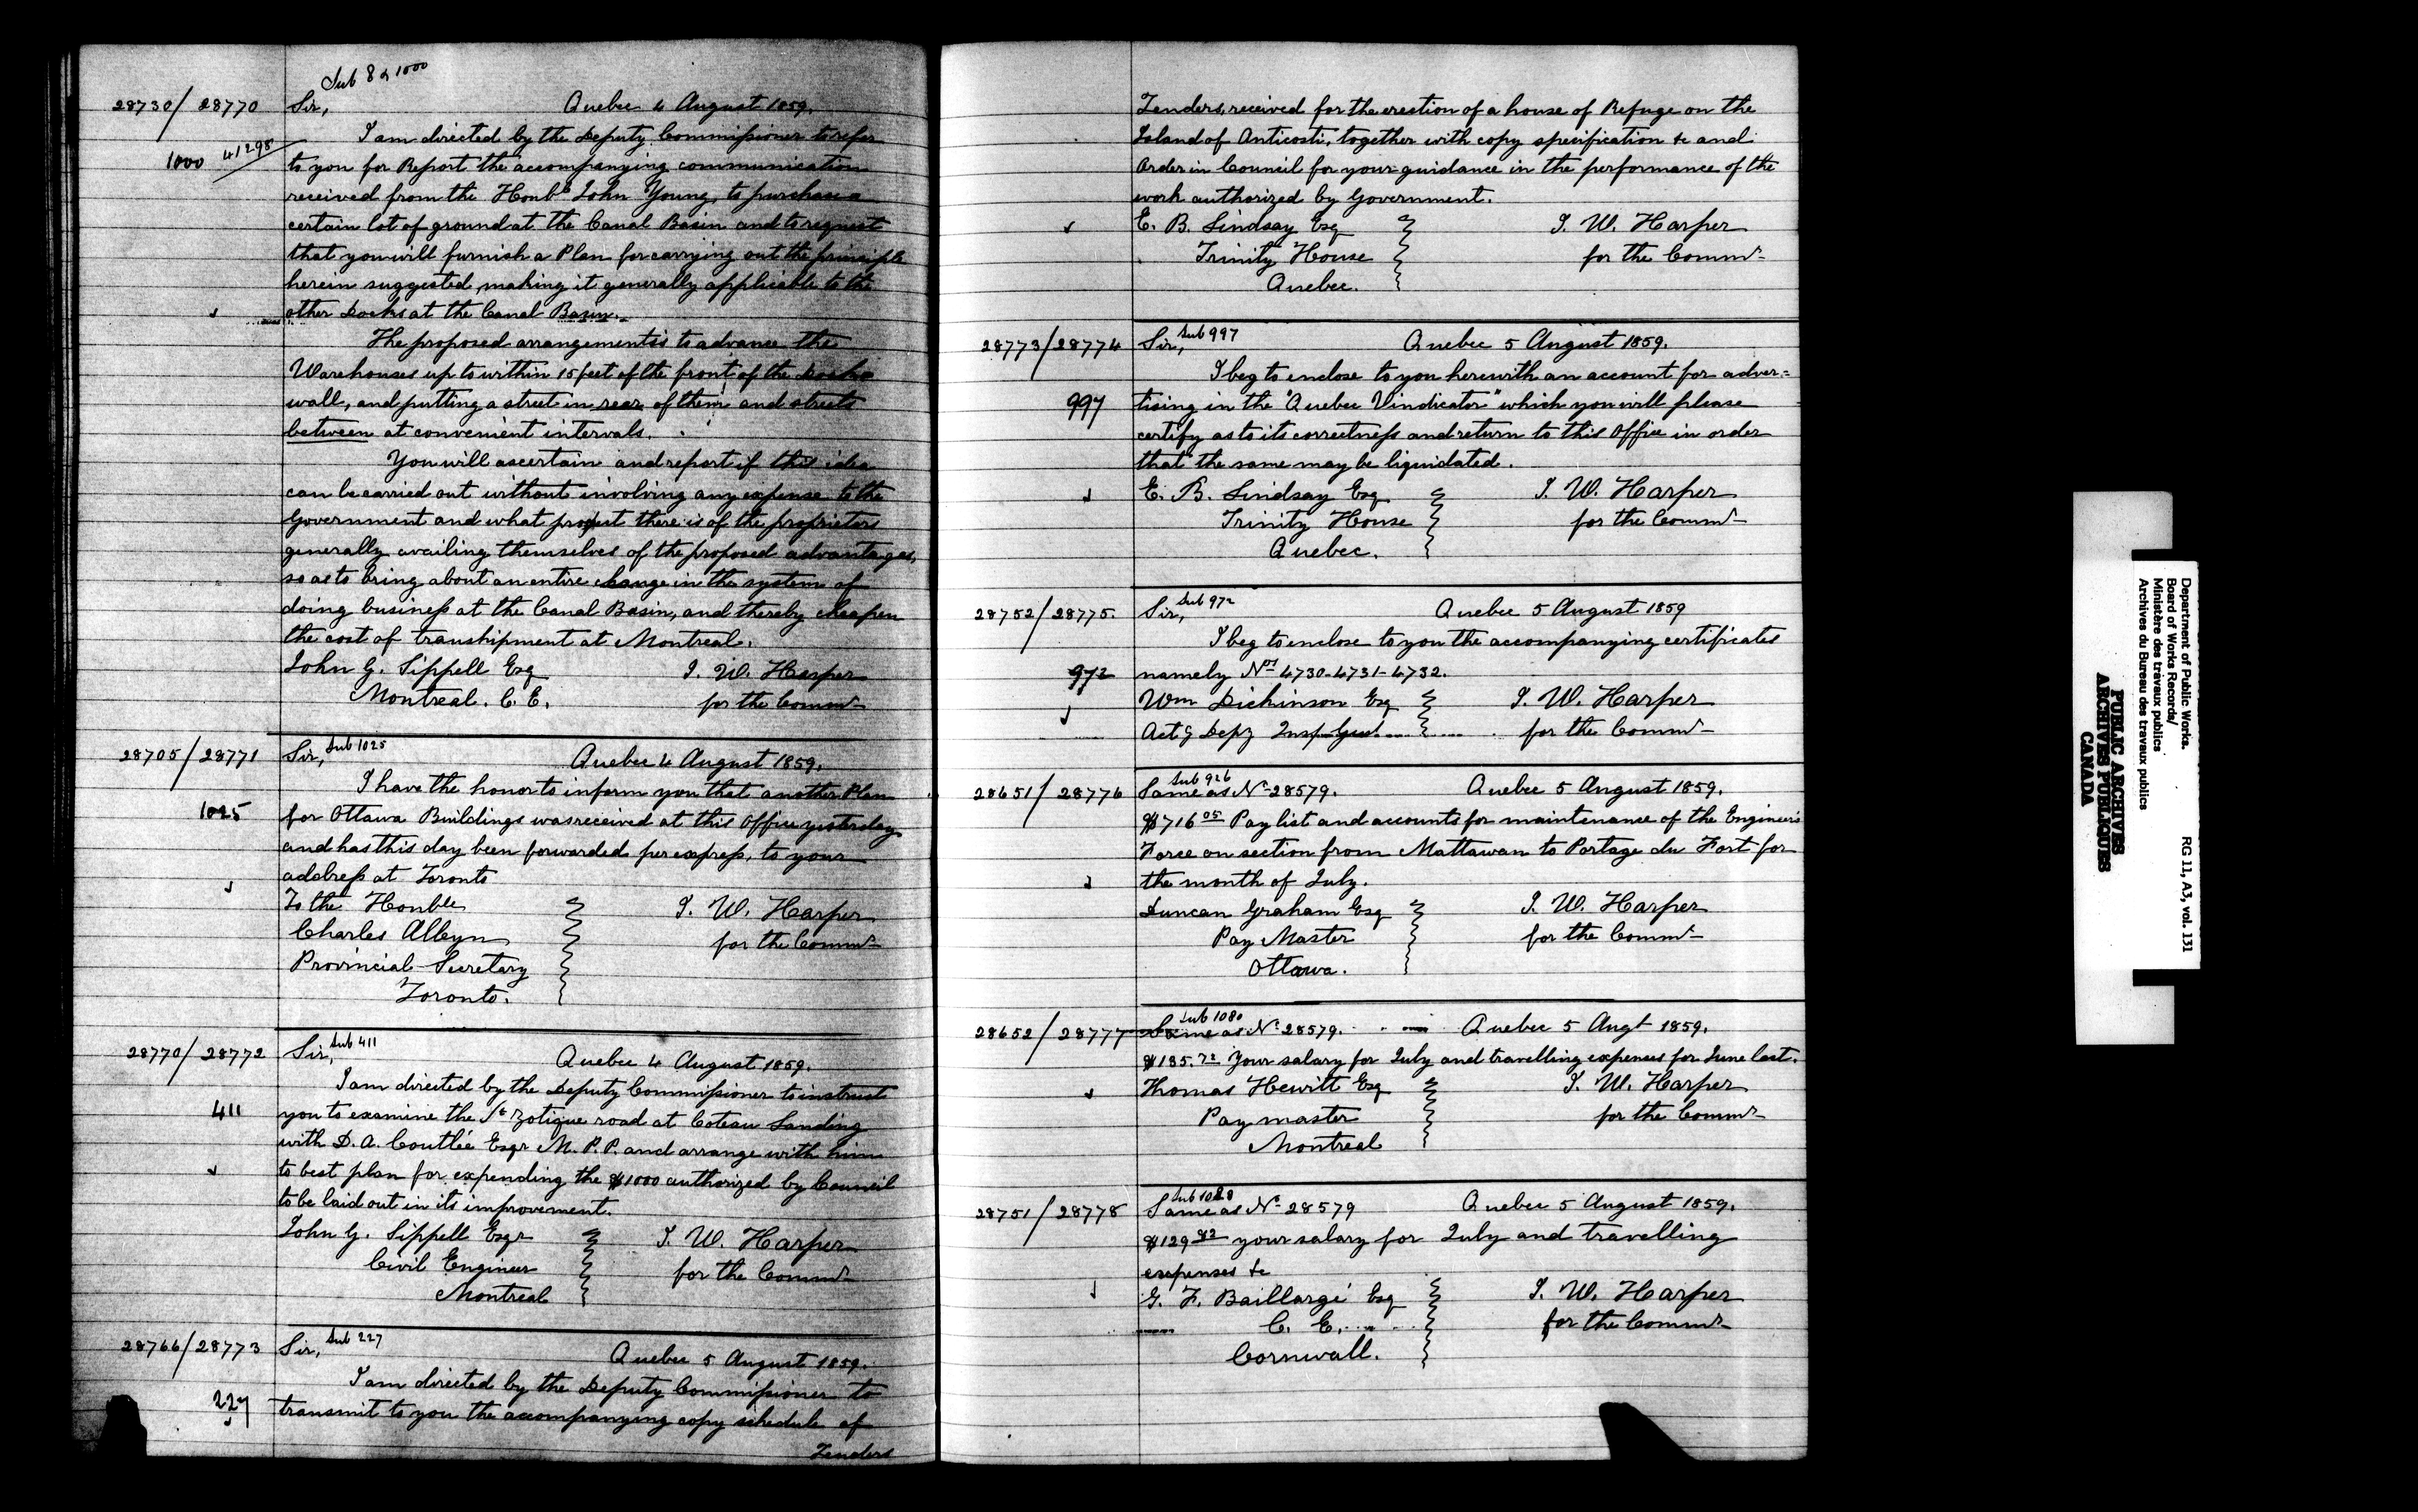 Sub 8 & 1000
28730/28770 Sir, Quebec 4 August 1859.
I am directed by the Deputy Commissioner to refer
1000 41298 to you for Report the accompanying communication
received from the Honble John Young, to purchase a
certain lot of ground at the Canal Basin and to request
that you will furnish a Plan for carrying out the principle
herein suggested, making it generally applicable to the
other Docks at the Canal Basin.
The proposed arrangement is to advance the
Warehouses up to within 15 feet of the front of the Docks
wall, and putting a street in rear of them and streets
between at convenient intervals.
You will ascertain and report if this idea
can be carried out without involving any expense to the
Government and what prospect there is of the proprietors
generally availing themselves of the proposed advantages,
so as to bring about an entire change in the system of
doing business at the Canal Basin, and thereby cheapen
the cost of transhipment at Montreal.
John G. Sippell Esq J. W. Harper
Montreal. C. E. for the Commr
28705/28771 Sir, Sub 1025 Quebec 4 August 1859.
I have the honor to inform you that another Plan
1025 for Ottawa Buildings was received at this Office yesterday
and has this day been forwarded per express, to your
address at Toronto
To the Honble J. W. Harper
Charles Alleyn for the Commr
Provincial Secretary
Toronto.
28770/28772 Sir, Sub 411 Quebec 4 August 1859.
I am directed by the Deputy Commissioner to instruct
411 you to examine the St Zotique road at Coteau Landing
with D. A. Coutlée Esqr M. P. P. and arrange with him
to best plan for expending the $1000 authorized by Council
to be laid out in its improvement.
John G. Sippell Esqr J. W. Harper
Civil Engineer for the Commr
Montreal
28766/28773 Sir, Sub 227 Quebec 5 August 1859.
I am directed by the Deputy Commissioner to
227 transmit to you the accompanying copy schedule of
Tenders
Tenders, received for the erection of a house of Refuge on the
Island of Anticosti, together with copy specification &c and
Order in Council for your guidance in the performance of the
work authorized by Government.
E. B. Lindsay Esq J. W. Harper
Trinity House for the Commr
Quebec.
28773/28774 Sir, Sub 997 Quebec 5 August 1859.
I beg to enclose to you herewith an account for adver=
997 tising in the "Quebec Vindicator" which you will please
certify as to its correctness and return to this Office in order
that the same may be liquidated.
E. B. Lindsay Esq J. W. Harper
Trinity House for the Commr
Quebec.
28752/28775. Sir, Sub 972 Quebec 5 August 1859
I beg to enclose to you the accompanying certificates
972 namely Nos 4730-4731-4732.
Wm Dickinson Esq J. W. Harper
Actg Depy Insp. Genl. for the Commr
Sub 926
28651/28776 Same as No 28579. Quebec 5 August 1859.
$716.05 Pay list and accounts for maintenance of the Engineer's
Force on section from Mattawan to Portage du Fort for
the month of July.
Duncan Graham Esq J. W. Harper
Pay Master for the Commr
Ottawa.
Sub 1080
28652/28777 Same as No 28579. Quebec 5 Augt 1859.
$185.72 Your salary for July and travelling expenses for June last.
Thomas Hewitt Esq J. W. Harper
Pay master for the Commr
Montreal
28751/28778 Same as No 28579 Quebec 5 August 1859.
$129 82 your salary for July and travelling
expenses &c
G. F. Baillargé Esq J. W. Harper
C. E. for the Commr
Cornwall.
Department of Public Works.
Board of Works Records/
Ministère des travaux publics
Archives du Bureau des travaux publics
RG 11, A3, vol. 131
PUBLIC ARCHIVES
ARCHIVES PUBLIQUES
CANADA